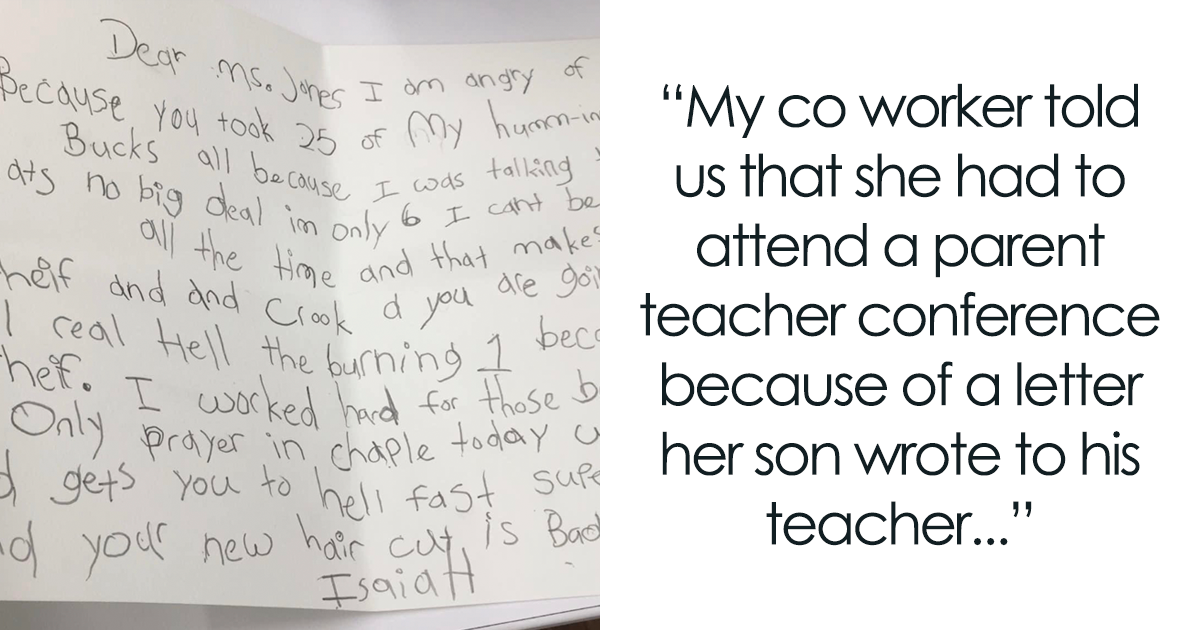 Dear Ms. Jones I am angry of
Because you took 25 of My humm-in
Bucks all because I was talking
ats no big deal im only 6 I cant be
all the time and that makes
heif and and Crook d you are goin
l real Hell the burning 1 beca
heif. I worked hard for those b
Only prayer in chaple today
d gets you to hell fast supe
d your new hair cut is Bad
IsaiaH
“My co worker told
us that she had to
attend a parent
teacher conference
because of a letter
her son wrote to his
teacher...”